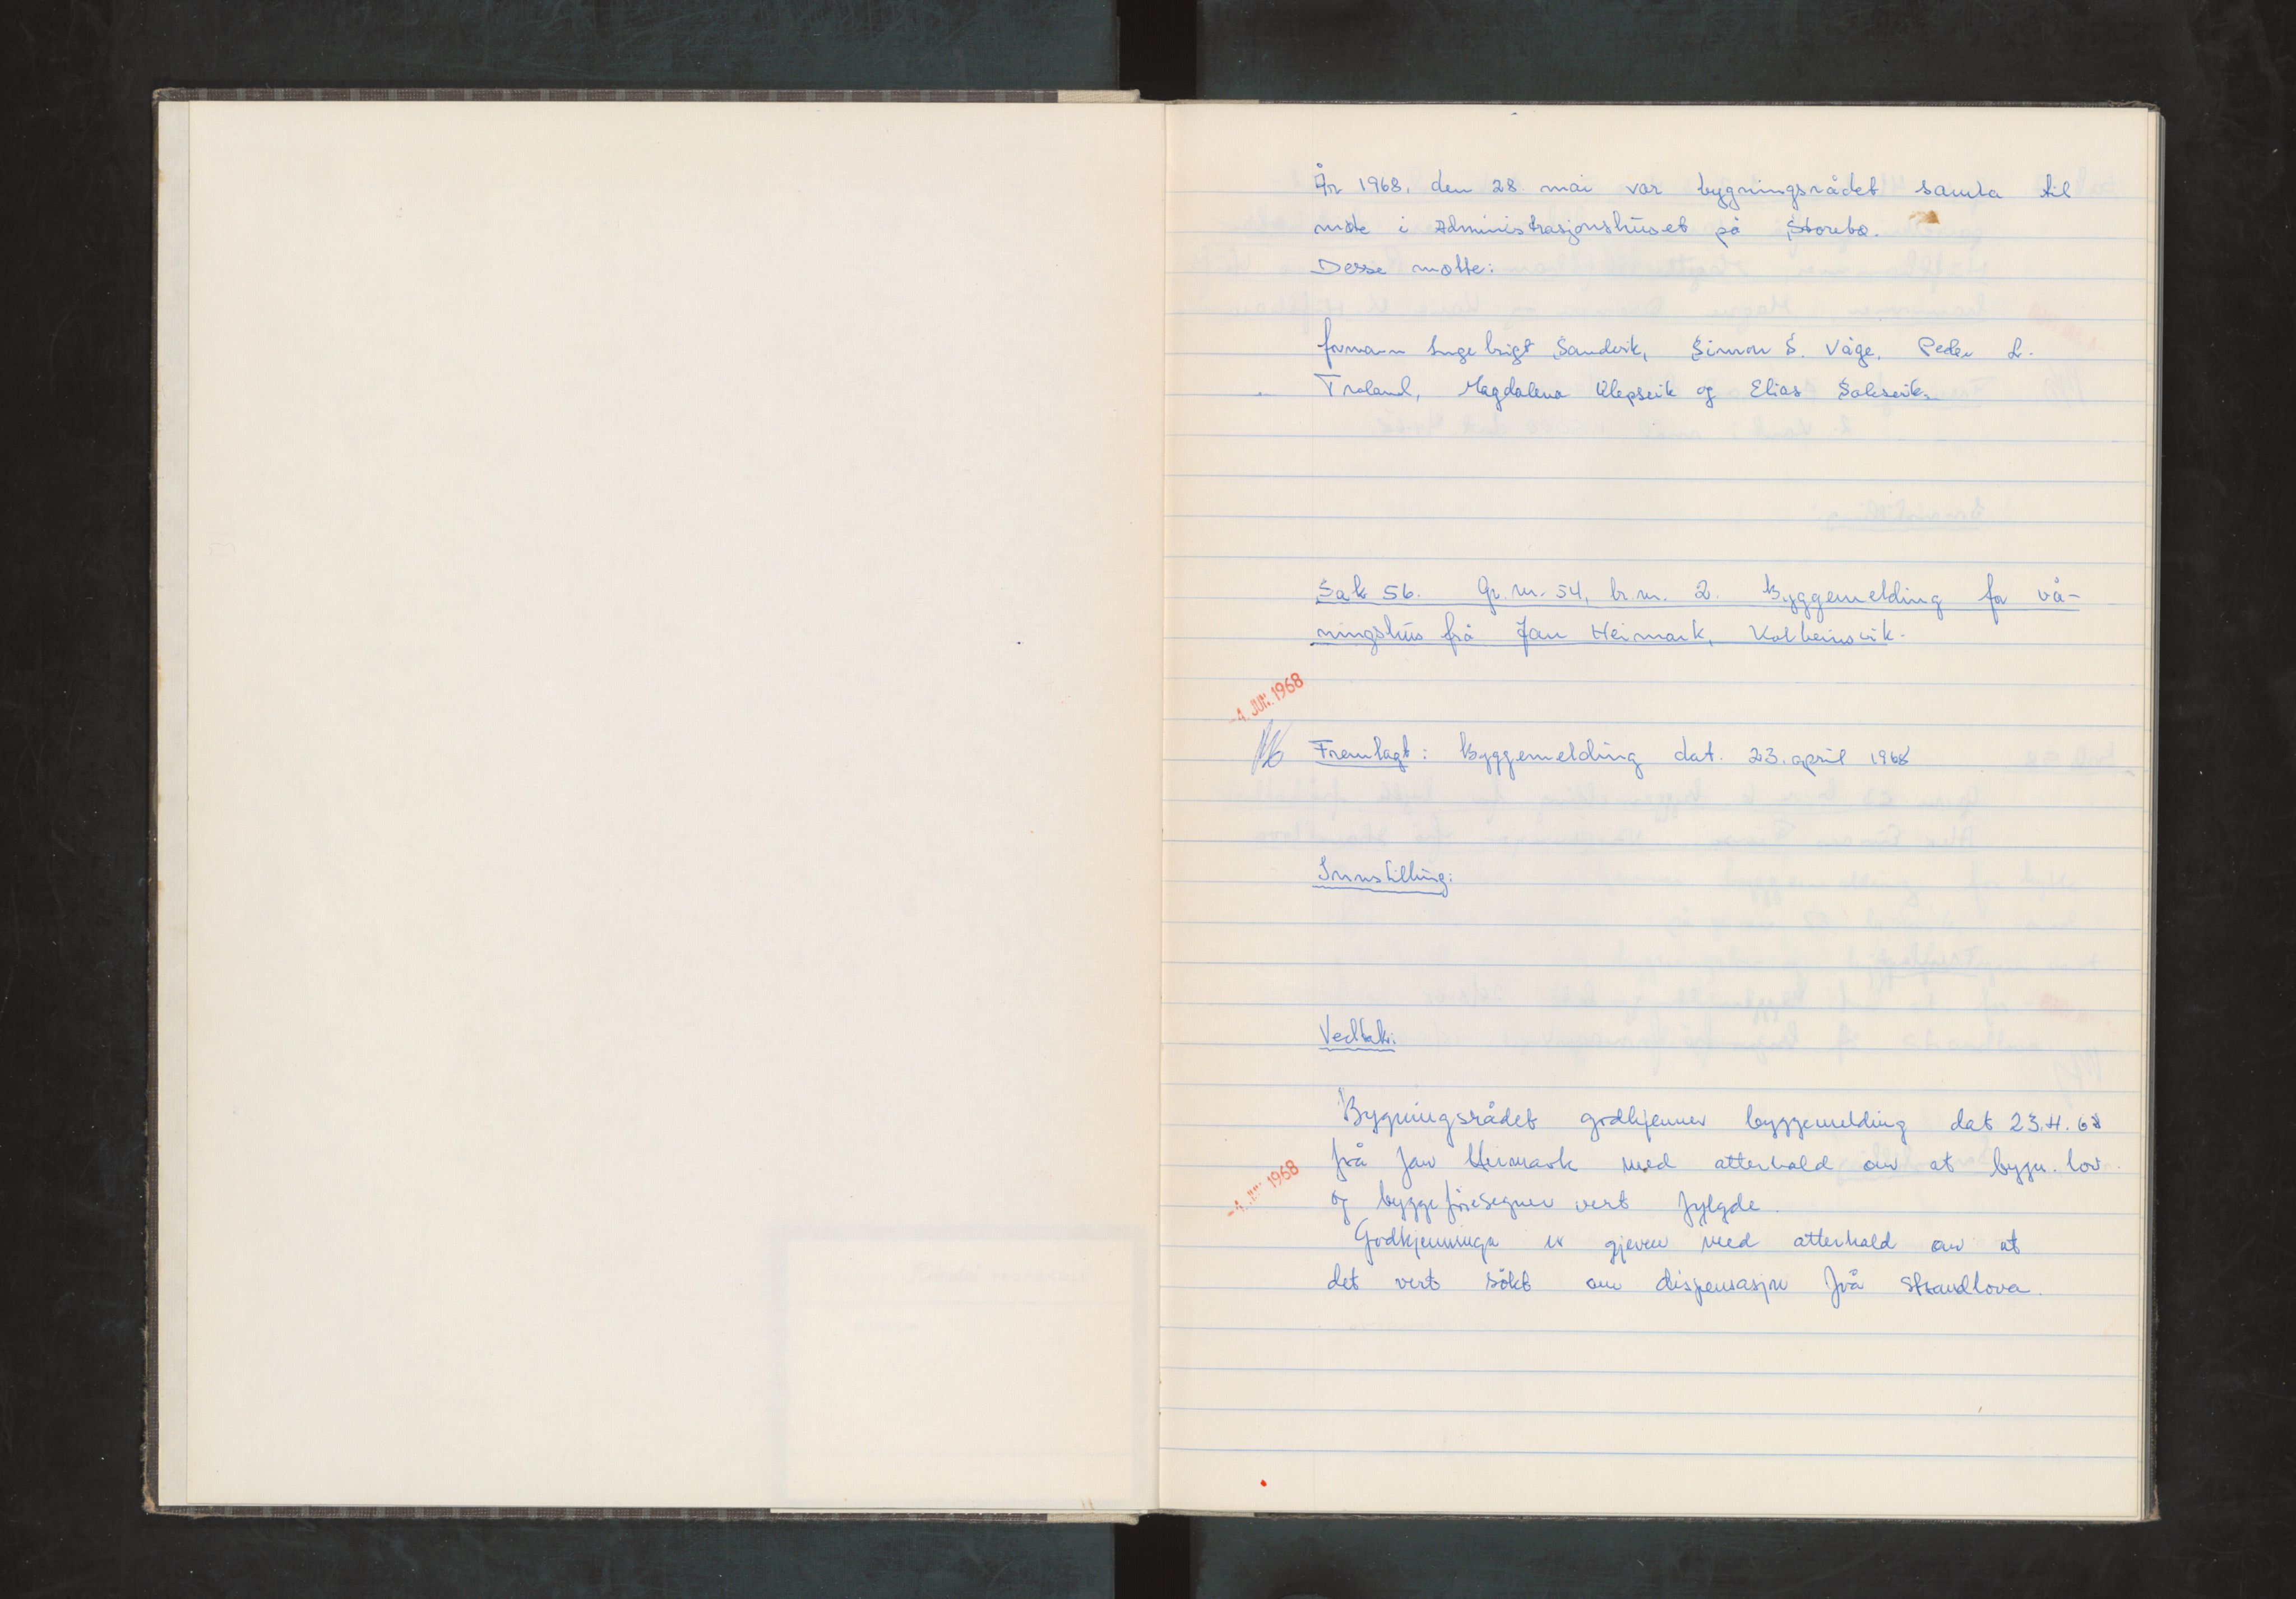 År 1968, den 28 mai var bygningsrådet samla til
møte i Administrasjonshuset på Storebø.
Desse møtte:
formann Ingebrigt Sandvik, Simon S. Våge, Peder L.
Troland, Magdalena Klepsvik og Elias Baksvik.
Sak 56. Gr.nr. 54, br.nr. 2. Byggemelding for vå-
ningshus frå Jan Heimark, Kolbeinsvik.
-4. JUN. 1968
Fremlagt: Byggemelding dat. 23. april 1968
Innstilling:
Vedtak:
Bygningsrådet godkjenner byggemelding dat 23.4.68
frå Jan Heimark med atterhald om at bygn. lov
-4. JUN 1968
og byggeføresegner vert fylgde.
Godkjenninga er gjeven med atterhald om at
det vert søkt om dispensasjon frå strandlova.